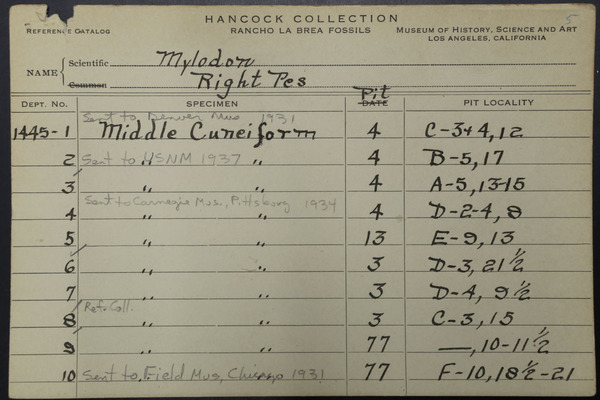 HANCOCK COLLECTION 5
REFERENCE CATALOG RANCHO LA BREA FOSSILS MUSEUM OF HISTORY, SCIENCE AND ART
LOS ANGELES, CALIFORNIA
NAME Scientific Mylodon
Common Right Pes
Pit
DEPT. NO. SPECIMEN DATE PIT LOCALITY
Sent to Denver Mus 1931
1445-1 Middle Cuneiform 4 C-3+4, 12
2 Sent to USNM 1937 " " 4 B-5, 17
3 " " 4 A-5, 13-15
Sent to Carnegie Mus., Pittsburg 1934
4 " " 4 D-2-4, 8
5 " " 13 E-9, 13
6 " " 3 D-3, 21 1/2
7 " " 3 D-4, 9 1/2
Ref. Coll.
8 " " 3 C-3, 15
9 " " 77 —, 10-11 1/2
10 Sent to Field Mus, Chicago 1931 " 77 F-10, 18 1/2-21